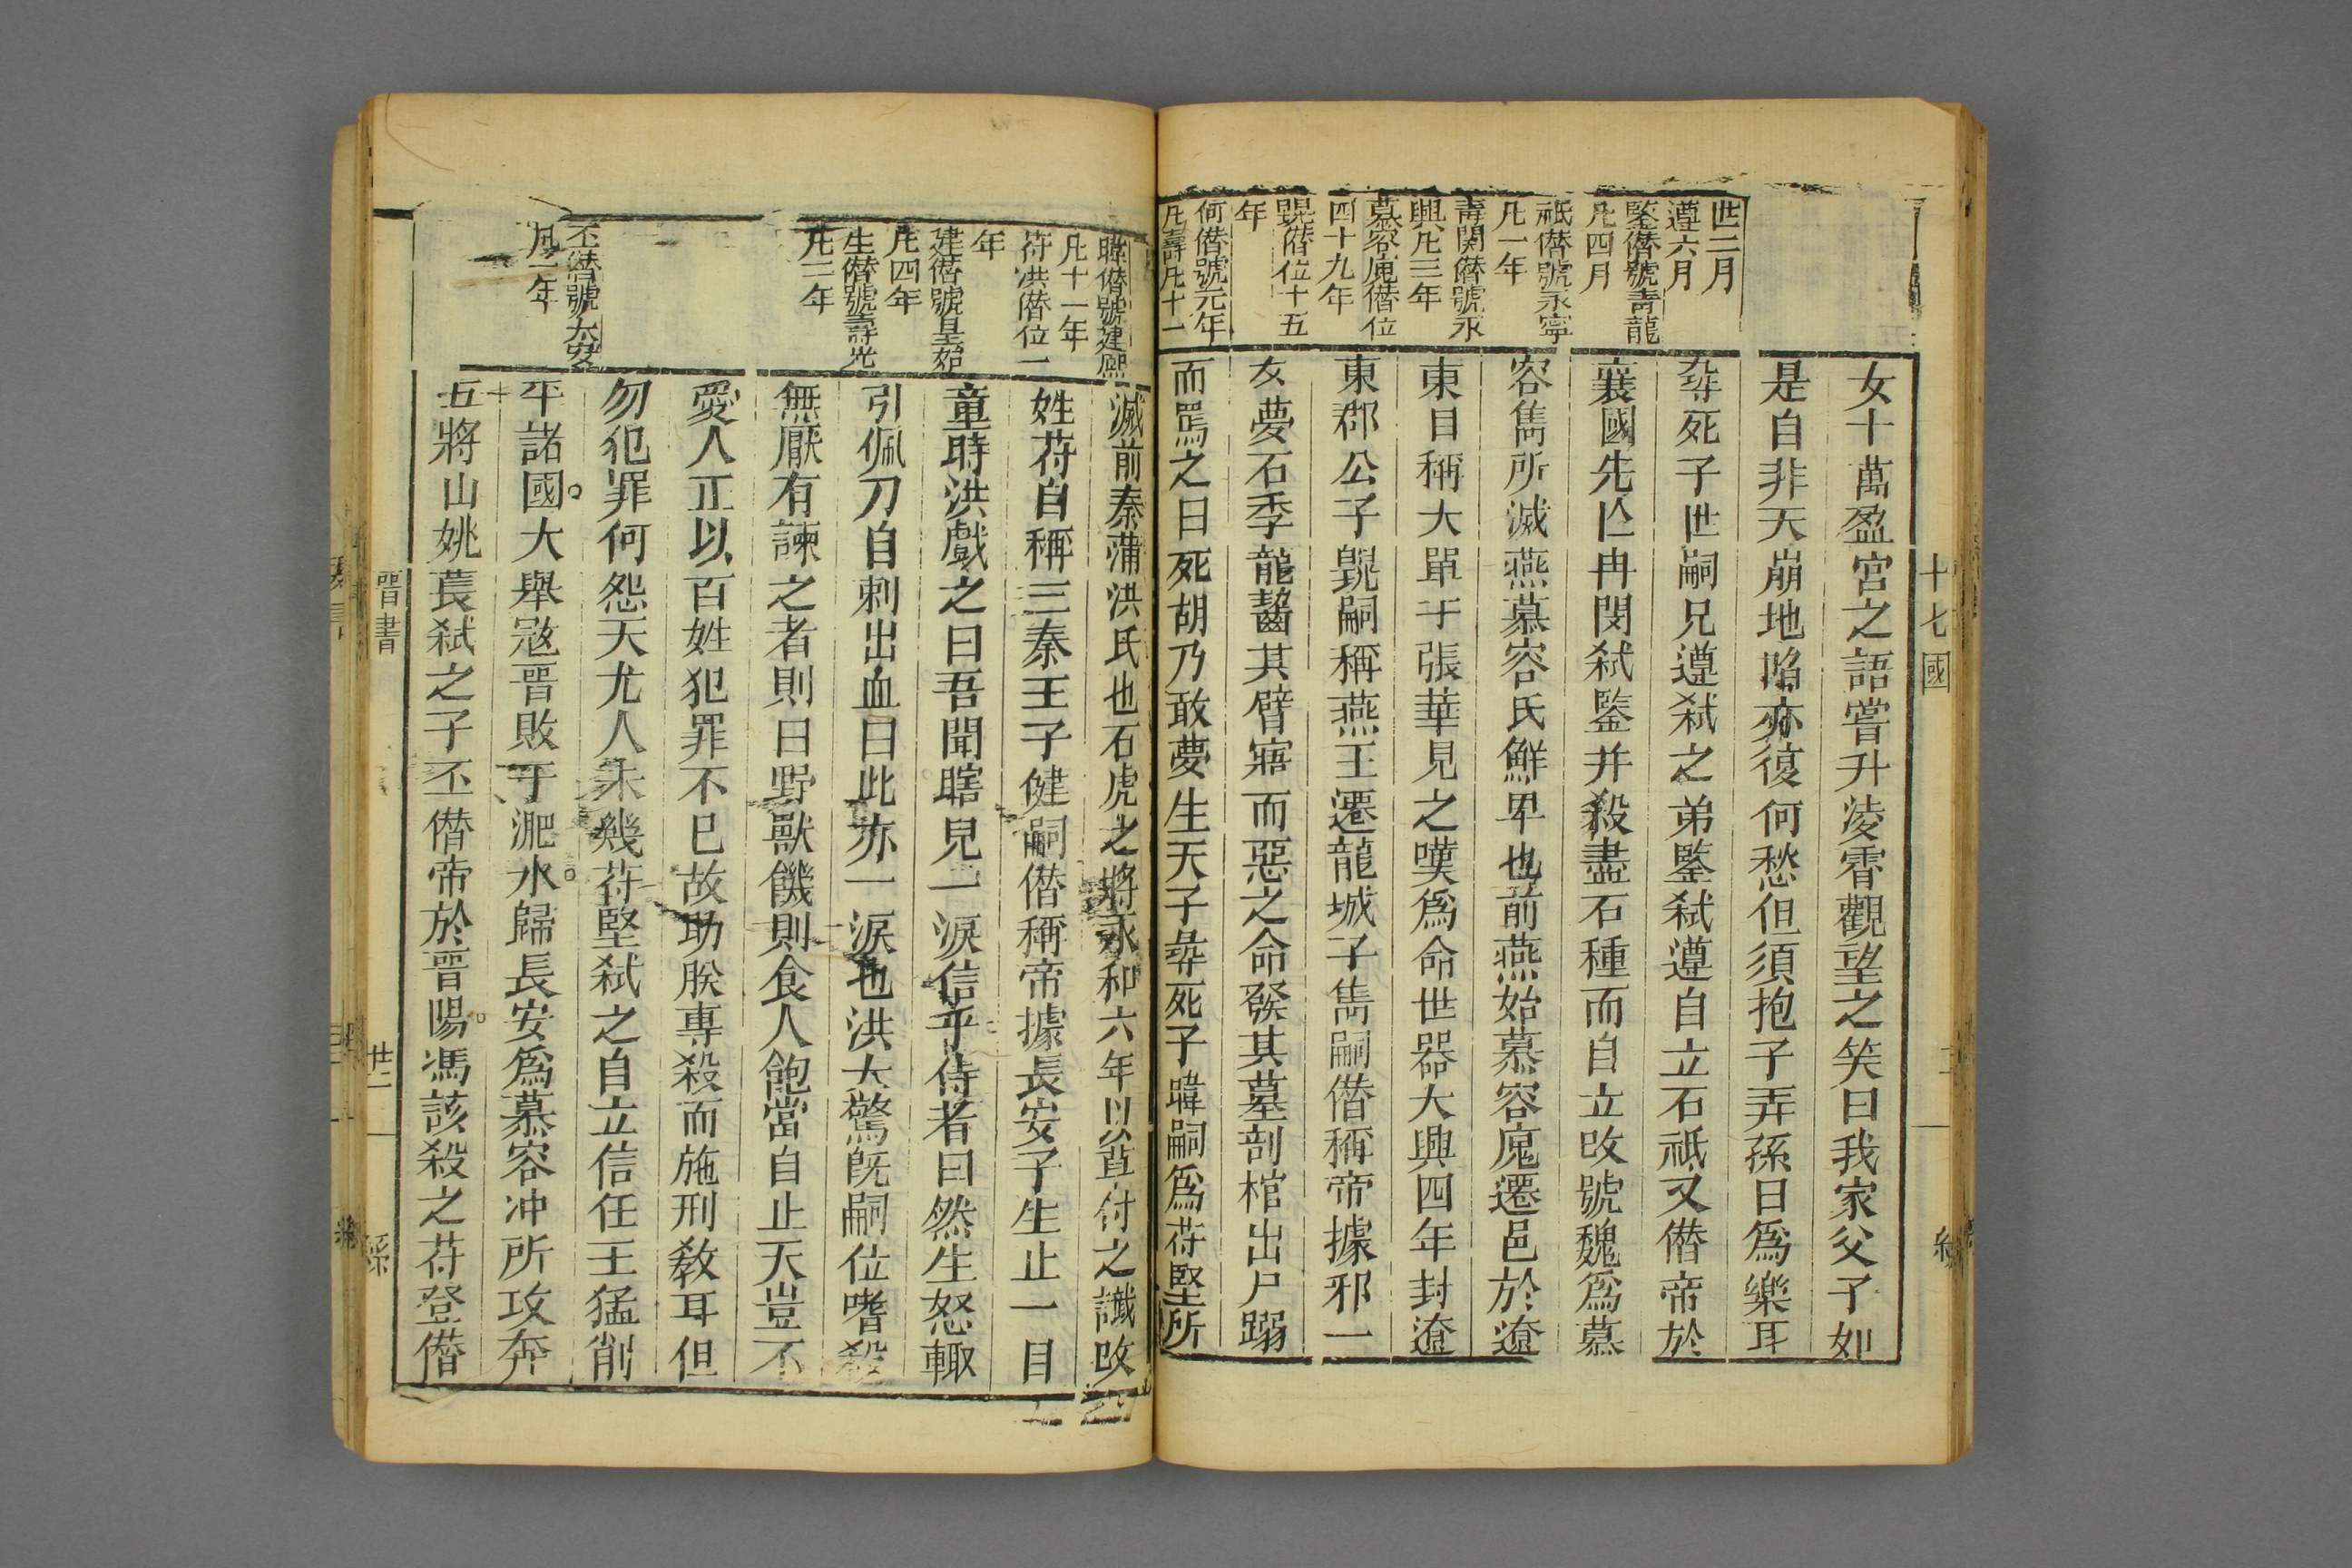 十七國
世二月
遵六月
鑒僭號青龍
凡四月
祇僭號永寧
凡一年
壽閔僭號永
興凡三年
慕容廆僭位
四十九年
皝僭位十五
年
僭號元年
凡壽凡十一
女十萬盈宫之語嘗升淩霄觀望之笑曰我家父子如
是自非天崩地陷亦復何愁但須抱子弄孫日爲樂耳
死子世嗣兄遵弑之弟鑒弑遵自立石祇又僭帝於
襄國先仁冉閔弑鑒并殺盡石種而自立改號魏爲慕
容雋所滅燕慕容氏鮮卑也前燕始慕容廆遷邑於遼
東自稱大單于張華見之嘆爲命世器大興四年封遼
東郡公子皝嗣稱燕王遷龍城子雋嗣僭稱帝據邪一
女夢石季龍齧其臂寤而惡之命發其墓剖棺出尸蹋
而罵之曰死胡乃敢夢生天子死子暐嗣爲苻堅所
暐僭號建熙
凡十一年
苻洪僭位一
年
建僭號皇始
凡四年
生僭號壽光
凡二年
丕僭號太安
凡一年
滅前秦蒲洪氐也石虎之將永和六年以草付之讖改
姓苻自稱三秦王子健嗣僭稱帝據長安子生止一目
童時洪戲之曰吾聞瞎兒一淚信乎侍者曰然生怒輙
引佩刀自刺出血曰此亦一淚也洪大驚旣嗣位嗜殺
無厭有諫之者則曰野獸饑則食人飽當自止天豈不
愛人正以百姓犯罪不已故助朕專殺而施刑敎耳但
勿犯罪何怨天尤人未幾苻堅弑之自立信任王猛削
平諸國大舉寇晉敗于淝水歸長安爲慕容冲所攻奔
五將山姚萇弑之子丕僭帝於晉陽馮該殺之苻登僭
晉書